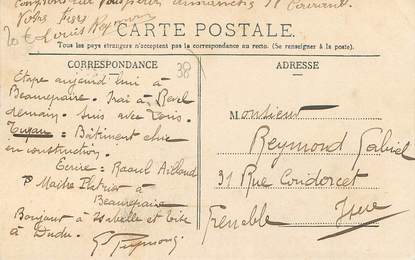 dimanche 18 Courant.
Louis Reymond
CARTE POSTALE.
Tous les pays étrangers n'acceptent pas la correspondance au recto. (Se renseigner à la poste).
CORRESPONDANCE
38
Etape aujourd'hui à
Beaurepaire. Irai à Revel
demain. Suis avec
Tuyau = Bâtiment chic
en construction.
Ecrire: Raoul Aillaud
Maître Platrier à
Beaurepaire
Bonjour à Isabelle et bise
à Dudu.
G Reymond
ADRESSE
Monsieur
Reymond Gabriel
31 Rue Condorcet
Grenoble
Isère